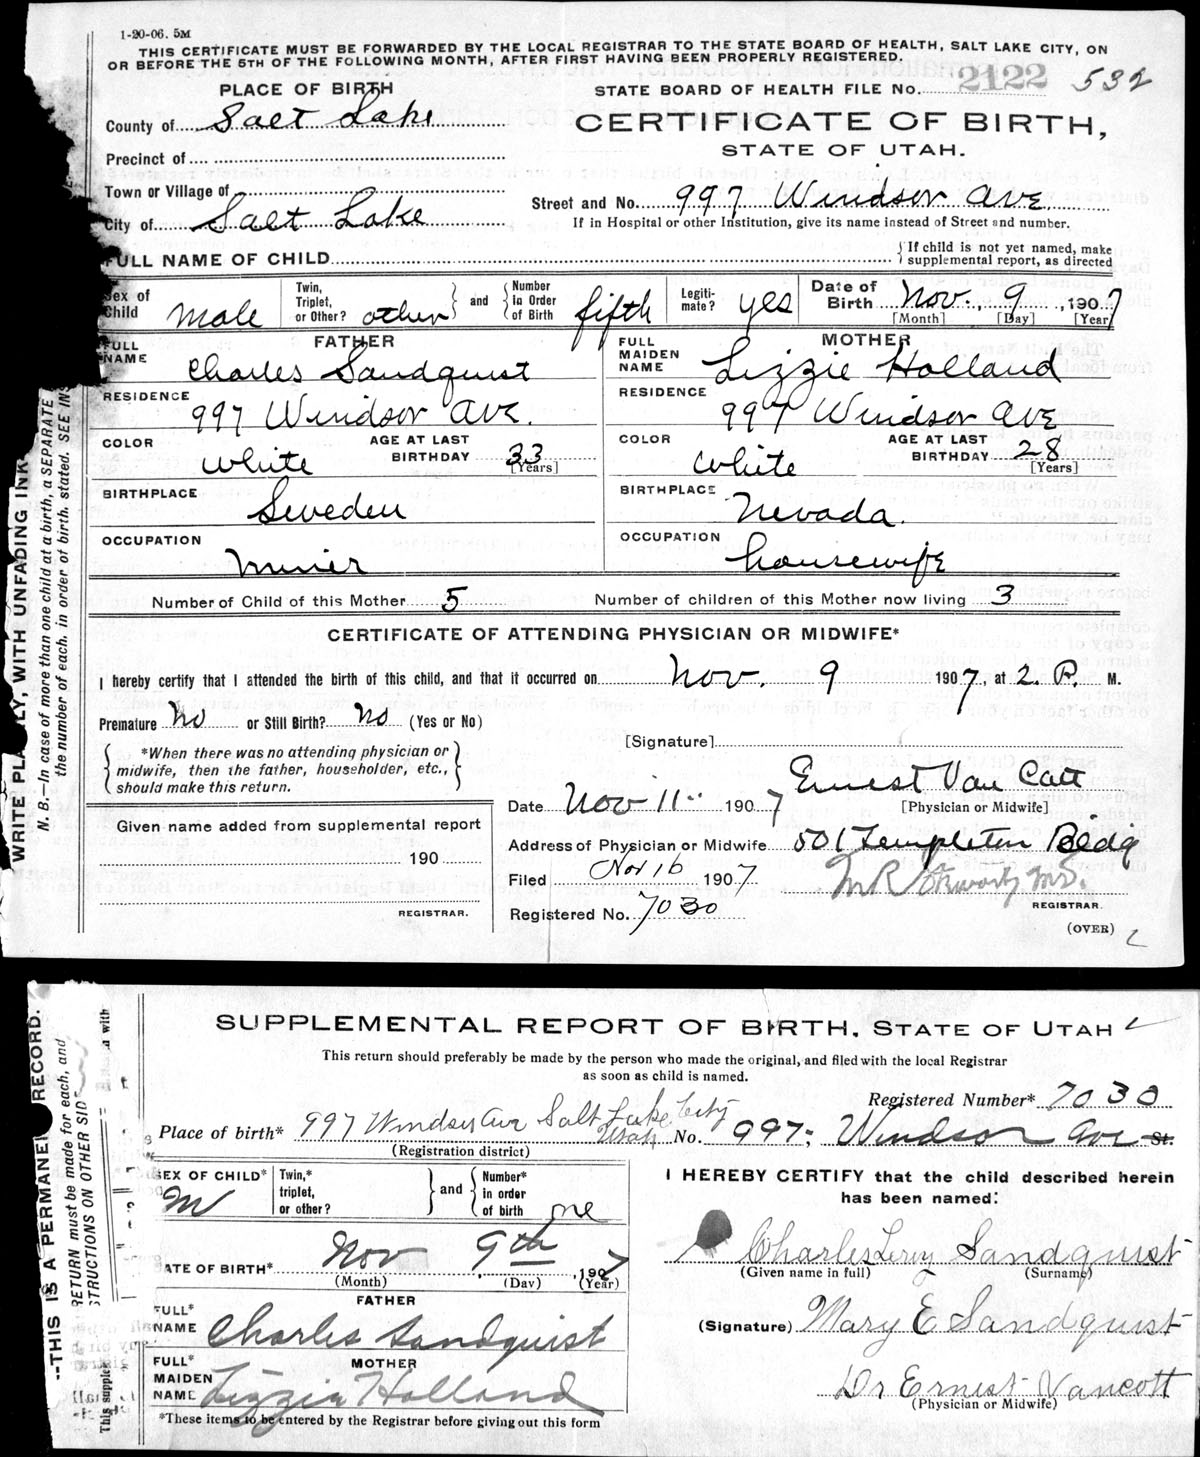 1-20-06. 5M
THIS CERTIFICATE MUST BE FORWARDED BY THE LOCAL REGISTRAR TO THE STATE BOARD OF HEALTH, SALT LAKE CITY, ON
OR BEFORE THE 5TH OF THE FOLLOWING MONTH, AFTER FIRST HAVING BEEN PROPERLY REGISTERED.
PLACE OF BIRTH
STATE BOARD OF HEALTH FILE No. 2122 532
County of Salt Lake
CERTIFICATE OF BIRTH,
STATE OF UTAH.
Precinct of
Town or Village of
Street and No. 997 Windsor Ave
City of Salt Lake
If in Hospital or other Institution, give its name instead of Street and number.
FULL NAME OF CHILD
If child is not yet named, make
supplemental report, as directed
Sex of Child male
Twin, Triplet, or Other? other
and Number in Order of Birth fifth
Legiti- mate? yes
Date of Birth Nov. 9, 1907
[Month] [Day] [Year]
FATHER
FULL NAME Charles Sandquist
MOTHER
FULL MAIDEN NAME Lizzie Holland
RESIDENCE 997 Windsor Ave.
RESIDENCE 997 Windsor Ave
COLOR White
AGE AT LAST BIRTHDAY 33 [Years]
COLOR White
AGE AT LAST BIRTHDAY 28 [Years]
BIRTHPLACE Sweden
BIRTHPLACE Nevada.
OCCUPATION Miner
OCCUPATION housewife
Number of Child of this Mother 5
Number of children of this Mother now living 3
CERTIFICATE OF ATTENDING PHYSICIAN OR MIDWIFE*
I hereby certify that I attended the birth of this child, and that it occurred on Nov. 9 1907, at 2. P. M.
Premature No or Still Birth? No (Yes or No)
[Signature]
*When there was no attending physician or
midwife, then the father, householder, etc.,
should make this return.
Ernest Van Cott
Date Nov 11 1907
[Physician or Midwife]
Given name added from supplemental report
190
REGISTRAR.
Address of Physician or Midwife 501 Templeton Bldg
Filed Nov 16 1907
M R M.D.
REGISTRAR.
Registered No. 7030
(OVER)
WRITE PLAINLY, WITH UNFADING INK
N. B.—In case of more than one child at a birth, a SEPARATE
the number of each, in order of birth, stated. SEE IN
SUPPLEMENTAL REPORT OF BIRTH, STATE OF UTAH
This return should preferably be made by the person who made the original, and filed with the local Registrar
as soon as child is named.
Registered Number* 7030
Place of birth* 997 Windsor Ave Salt Lake City Utah No. 997; Windsor Ave St.
(Registration district)
SEX OF CHILD* M
Twin,* triplet, or other?
and Number* in order of birth one
I HEREBY CERTIFY that the child described herein
has been named:
Charles Leroy Sandquist
(Given name in full) (Surname)
DATE OF BIRTH* Nov 9th, 1907
(Month) (Day) (Year)
FATHER
FULL* NAME Charles Sandquist
(Signature) Mary E Sandquist
MOTHER
FULL* MAIDEN NAME Lizzie Holland
Dr Ernest Vancott
(Physician or Midwife)
*These items to be entered by the Registrar before giving out this form
--THIS IS A PERMANENT RECORD.
RETURN must be made for each, and
STRUCTIONS ON OTHER SIDE
This supple